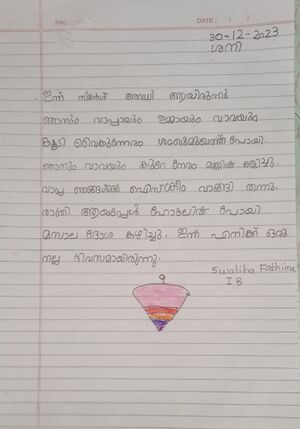 PAGE
DATE: / /
30-12-2023
ശനി
ഇന്ന് സ്കൂൾ അവധി ആയിരുന്നു
ഞാനും വാപ്പായും ഉമ്മായും വാവയും
കൂടി വൈകുന്നേരം ശംഖുമുഖത്ത് പോയി.
ഞാനും വാവയും കുറേ നേരം മണ്ണിൽ കളിച്ചു.
വാപ്പ ഞങ്ങൾക്ക് ഐസ്ക്രീം വാങ്ങി തന്നു.
രാത്രി ആയപ്പോൾ ഹോട്ടലിൽ പോയി
മസാല ദോശ കഴിച്ചു. ഇന്ന് എനിക്ക് ഒരു
നല്ല ദിവസമായിരുന്നു.
Swaliha Fathima
I B